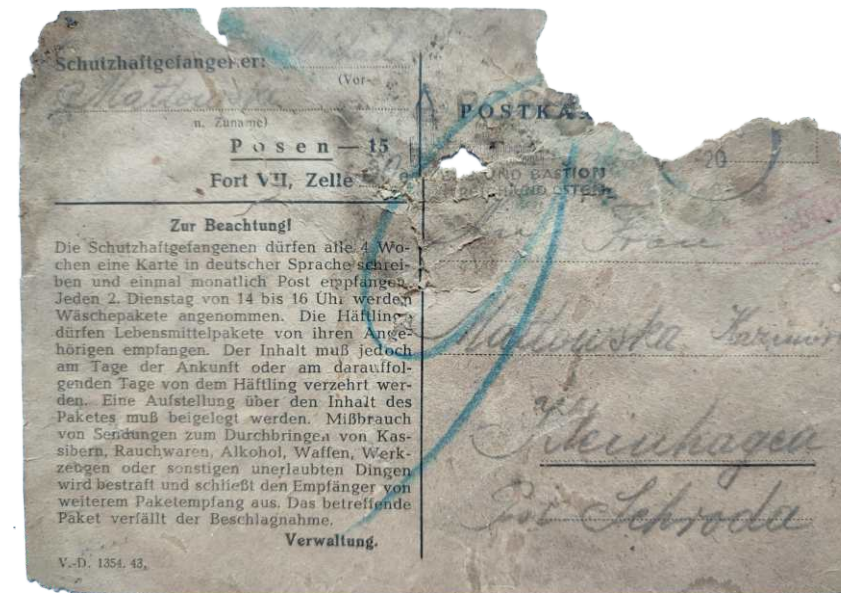 Schutzhaftgefangener:
(Vor-
Matłowska
u. Zuname)
Posen — 15
Fort VII, Zelle
Zur Beachtung!
Die Schutzhaftgefangenen dürfen alle 4 Wo-
chen eine Karte in deutscher Sprache schrei-
ben und einmal monatlich Post empfangen.
Jeden 2. Dienstag von 14 bis 16 Uhr werden
Wäschepakete angenommen. Die Häftlinge
dürfen Lebensmittelpakete von ihren Ange-
hörigen empfangen. Der Inhalt muß jedoch
am Tage der Ankunft oder am darauffol-
genden Tage von dem Häftling verzehrt wer-
den. Eine Aufstellung über den Inhalt des
Paketes muß beigelegt werden. Mißbrauch
von Sendungen zum Durchbringen von Kas-
sibern, Rauchwaren, Alkohol, Waffen, Werk-
zeugen oder sonstigen unerlaubten Dingen
wird bestraft und schließt den Empfänger von
weiterem Paketempfang aus. Das betreffende
Paket verfällt der Beschlagnahme.
Verwaltung.
V.-D. 1354. 43,
POSTKA
20
UND BASTION
Frau
Matłowska
Kleinhagen
Schroda